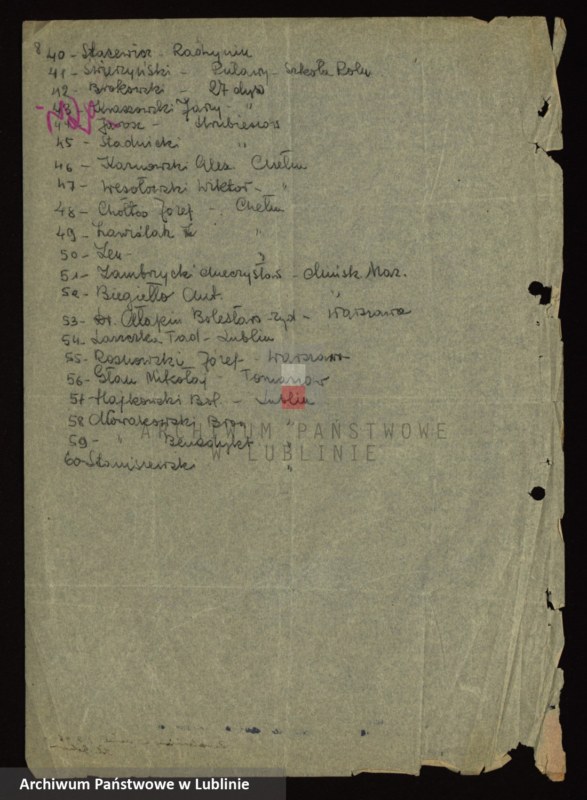 40 - Staszewicz - Radzyniu
41 - Strzerzyński - Puławy - Szkoła Roln
42 - Brokowski - 27 dyw
43 - Kraszowski Jerzy - "
44 - Jarosz - Hrubieszów
45 - Stadnicki "
46 - Karnowski Alex. Chełm
47 - Wesołowski Wiktor - "
48 - Chołko Józef - Chełm
49 - Zawiślak "
50 - Len - "
51 - Zambrzycki Mieczysław - Mińsk Maz.
52 - Biegiełło Ant. "
53 - Dr. Bolesław - żyd - Warszawa
54 - Tad - Lublin
55 - Rosnowski Józef - Warszawa
56 - Mikołaj - Tomaszów
57 - Hajkowski Bol. - Lublin
58 Nowakowski Bron "
59 - " Benedykt "
60 - Staniszewski "
ARCHIWUM PAŃSTWOWE
W LUBLINIE
Archiwum Państwowe w Lublinie